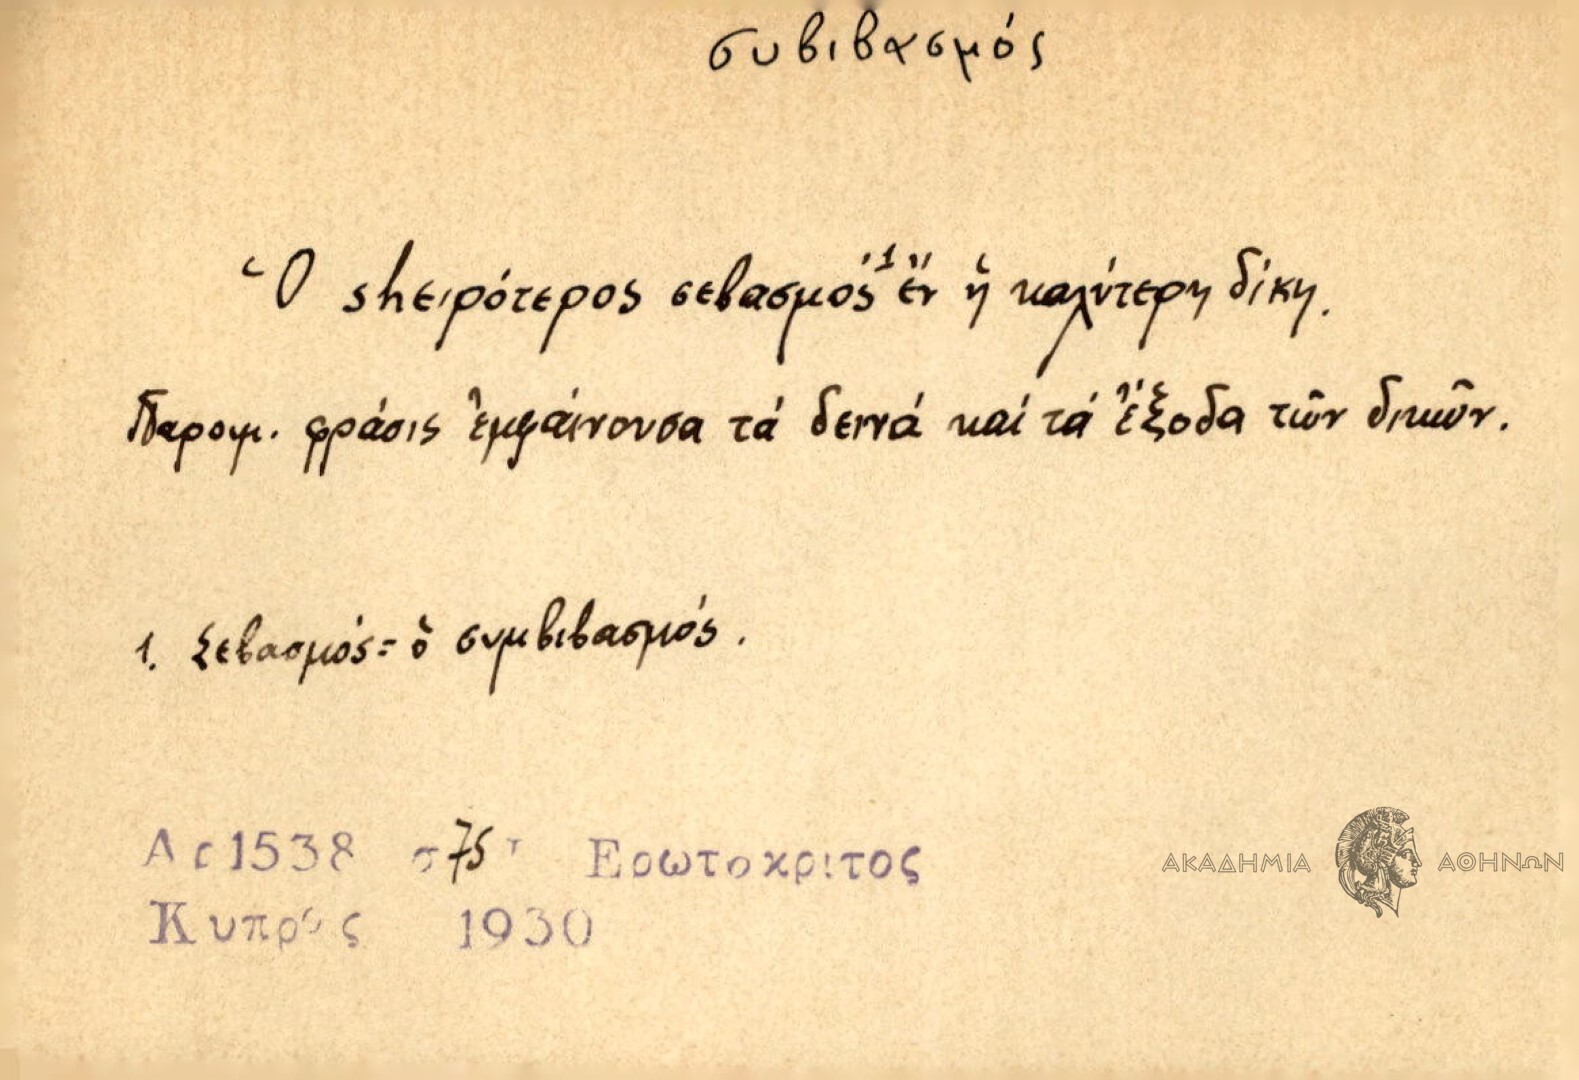 συβιβασμός
Ὁ shειρότερος σεβασμός¹ ἔν ἡ καλύτερη δίκη.
Παροιμ. φράσις ἐμφαίνουσα τά δεινά καί τά ἔξοδα τῶν δικῶν.
1. Σεβασμός = ὁ συμβιβασμός.
Αc 1538 σ 75 Ερωτοκριτος
Κυπρος 1930
ΑΚΑΔΗΜΙΑ ΑΘΗΝΩΝ